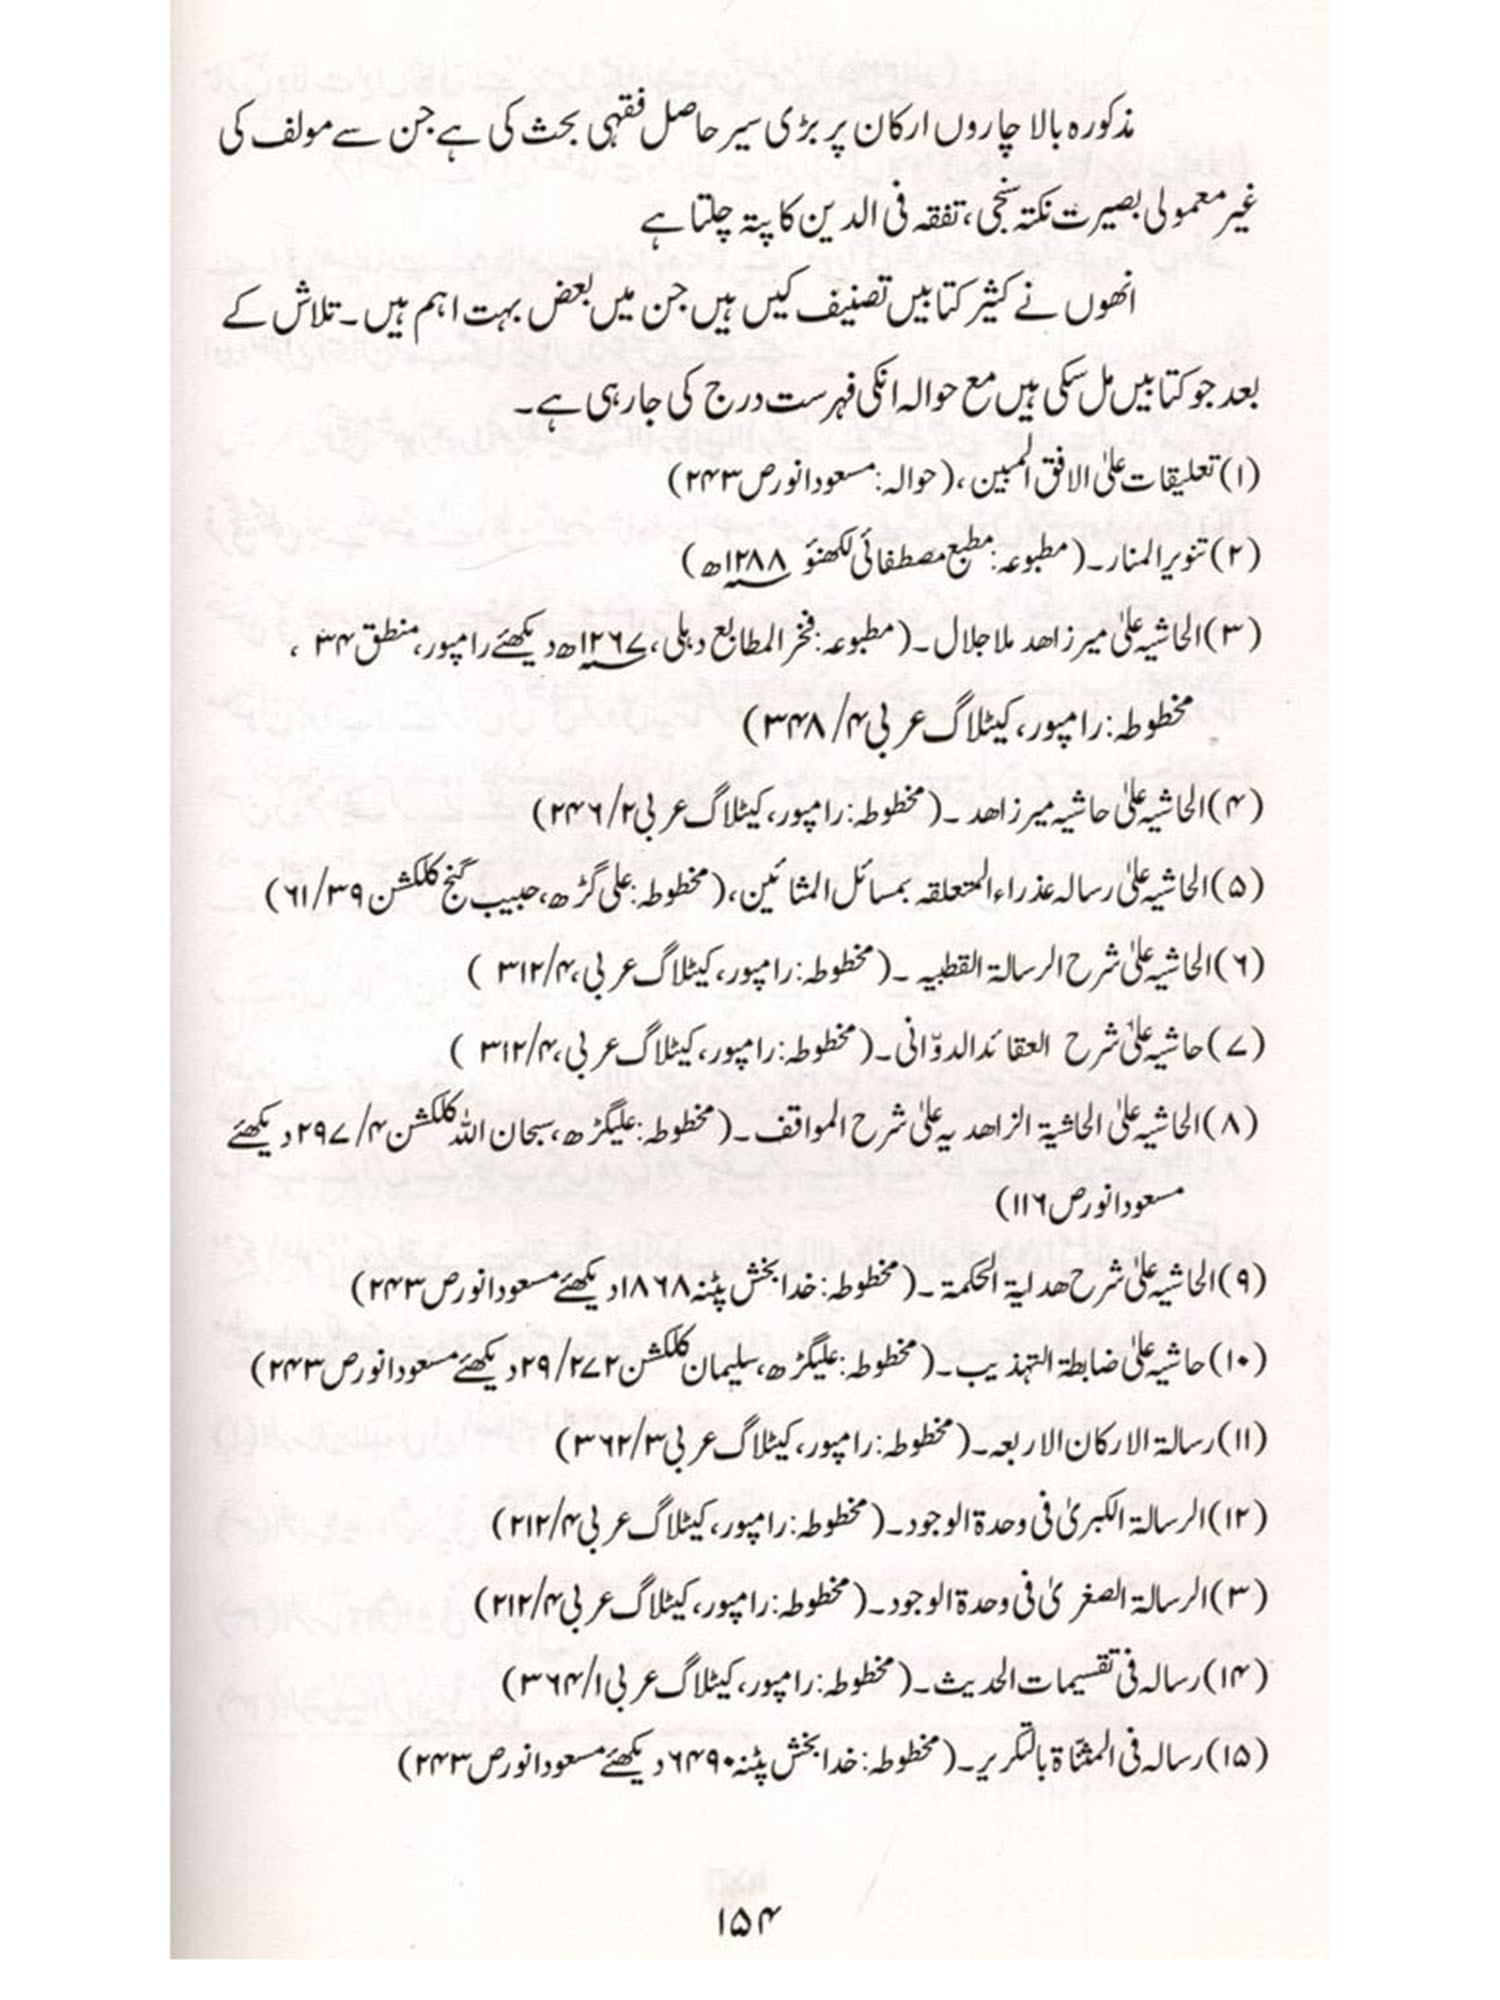 مذکورہ بالا چاروں ارکان پر بڑی سیر حاصل فقہی بحث کی ہے جن سے مولف کی
غیر معمولی بصیرت نکتہ سنجی، تفقہ فی الدین کا پتہ چلتا ہے
انھوں نے کثیر کتابیں تصنیف کیں ہیں جن میں بعض بہت اہم ہیں۔ تلاش کے
بعد جو کتابیں مل سکی ہیں مع حوالہ انکی فہرست درج کی جارہی ہے۔
(۱) تعلیقات علیٰ الافق المبین، (حوالہ: مسعود انور ص ۲۴۳)
(۲) تنویر المنار۔ (مطبوعہ: مطبع مصطفائی لکھنؤ ۱۲۸۸ھ)
(۳) الحاشیہ علیٰ میر زاھد ملا جلال۔ (مطبوعہ: فخر المطابع دہلی، ۱۲۶۷ھ دیکھئے رامپور، منطق ۳۴،
مخطوطہ: رامپور، کیٹلاگ عربی ۴/ ۳۴۸)
(۴) الحاشیہ علیٰ حاشیہ میر زاھد ۔ (مخطوطہ: رامپور، کیٹلاگ عربی ۲/ ۲۴۶)
(۵) الحاشیہ علیٰ رسالہ عذراء المتعلقہ بمسائل المشائین، (مخطوطہ: علی گڑھ، حبیب گنج کلکشن ۳۹/ ۶۱)
(۶) الحاشیہ علیٰ شرح الرسالۃ القطبیہ ۔ (مخطوطہ: رامپور، کیٹلاگ عربی، ۴/ ۳۱۲ )
(۷) حاشیہ علیٰ شرح العقائد الدوّانی۔ (مخطوطہ: رامپور، کیٹلاگ عربی، ۴/ ۳۱۲ )
(۸) الحاشیہ علیٰ الحاشیۃ الزاھدیہ علیٰ شرح المواقف ۔ (مخطوطہ: علیگڑھ، سبحان اللہ کلکشن ۴/ ۲۹۷ دیکھئے
مسعود انور ص ۱۱۶)
(۹) الحاشیہ علیٰ شرح ھدایۃ الحکمۃ ۔ (مخطوطہ: خدا بخش پٹنہ ۱۸۶۸ دیکھئے مسعود انور ص ۲۴۳)
(۱۰) حاشیہ علیٰ ضابطۃ التہذیب۔ (مخطوطہ: علیگڑھ، سلیمان کلکشن ۲۷۲/ ۲۹ دیکھئے مسعود انور ص ۲۴۳)
(۱۱) رسالۃ الارکان الاربعہ۔ (مخطوطہ: رامپور، کیٹلاگ عربی ۳/ ۳۶۲)
(۱۲) الرسالۃ الکبریٰ فی وحدۃ الوجود۔ (مخطوطہ: رامپور، کیٹلاگ عربی ۴/ ۲۱۲)
(۳) الرسالۃ الصغریٰ فی وحدۃ الوجود۔ (مخطوطہ: رامپور، کیٹلاگ عربی ۴/ ۲۱۲)
(۱۴) رسالہ فی تقسیمات الحدیث۔ (مخطوطہ: رامپور، کیٹلاگ عربی ۱/ ۳۶۴)
(۱۵) رسالہ فی المثنّاۃ بالتکریر۔ (مخطوطہ: خدا بخش پٹنہ ۶۴۹۰ دیکھئے مسعود انور ص ۲۴۳)
۱۵۴